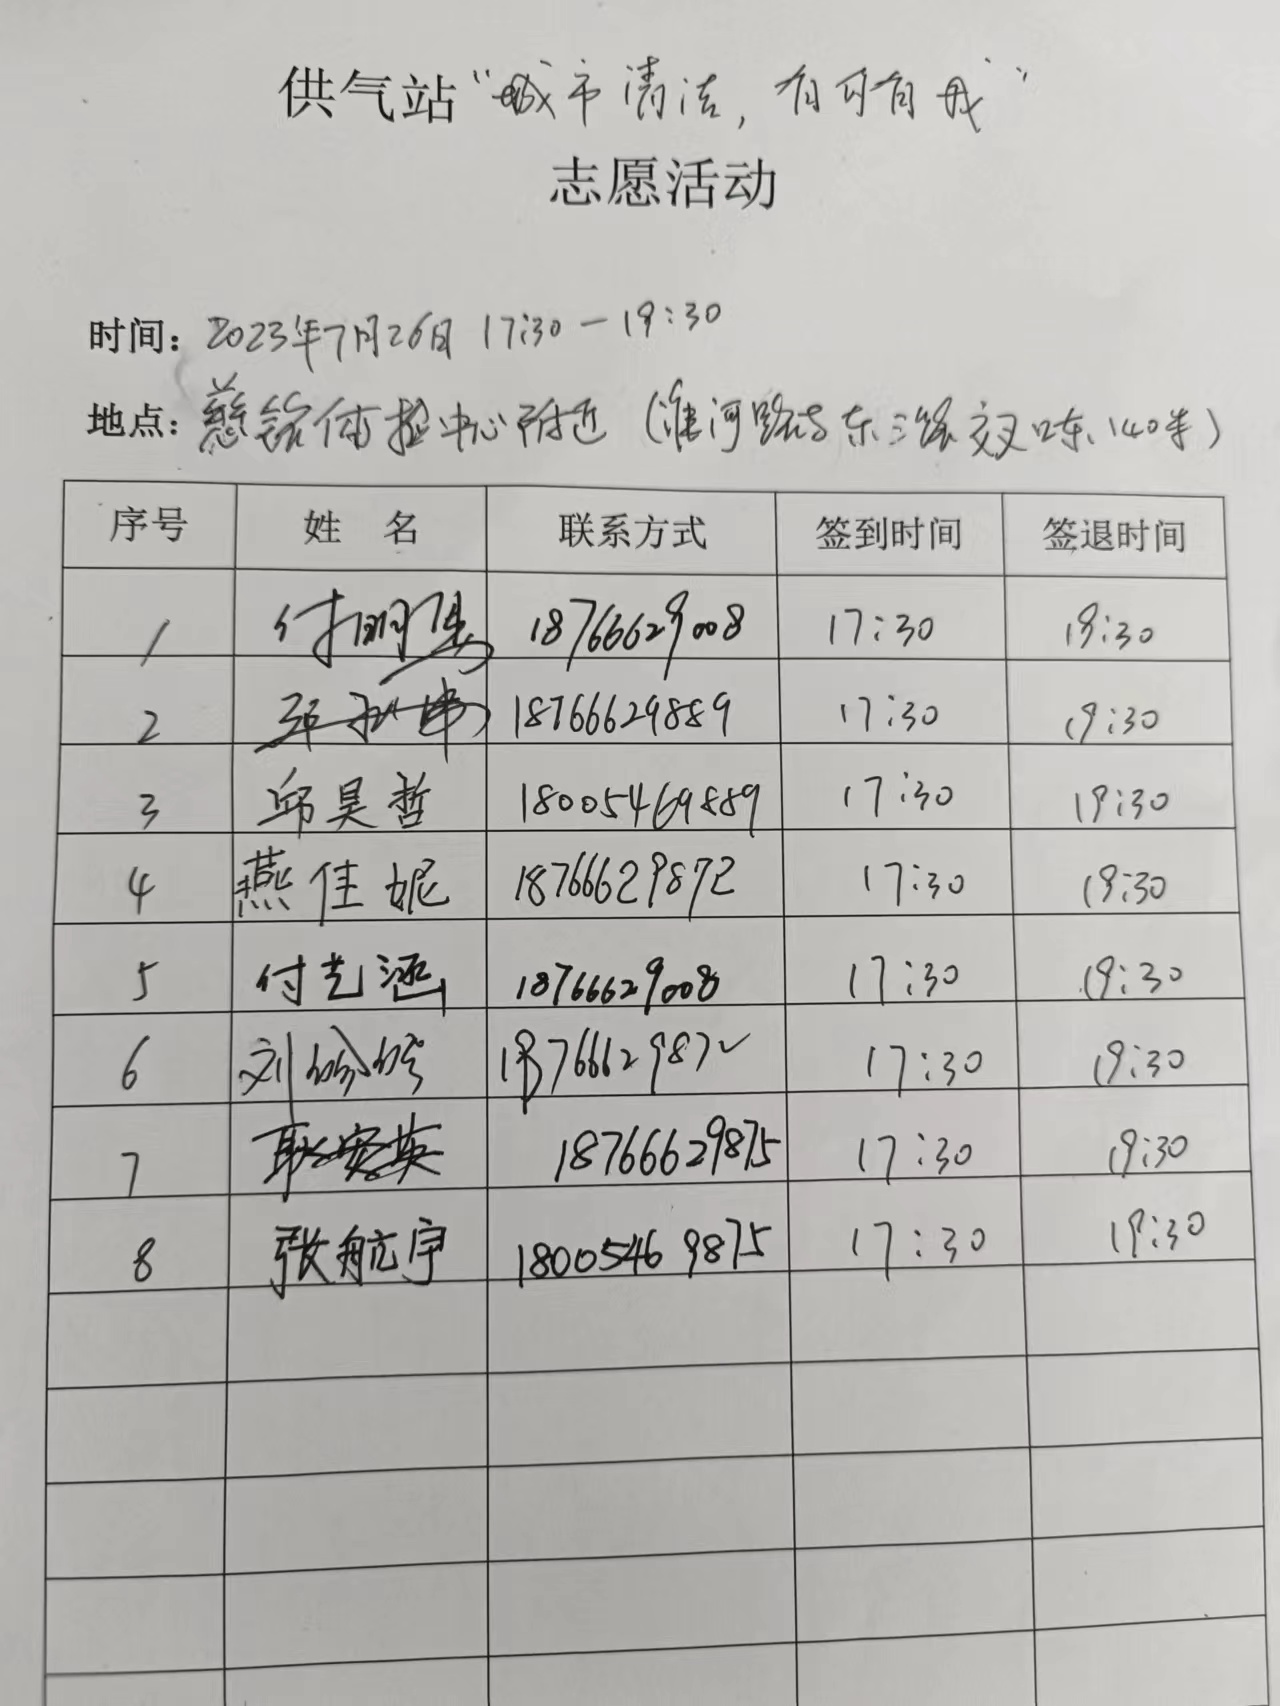 供气站“城市清洁，有你有我”
志愿活动
时间：2023年7月26日 17:30—19:30
地点：慈铭体检中心附近（淮河路与东三路交叉口东140米）
序号 姓名 联系方式 签到时间 签退时间
1 付明 18766629008 17:30 19:30
2 18766629889 17:30 19:30
3 邱昊哲 18005469889 17:30 19:30
4 燕佳妮 18766629872 17:30 19:30
5 付艺涵 18766629008 17:30 19:30
6 刘 18766629872 17:30 19:30
7 耿安英 18766629875 17:30 19:30
8 张航宇 18005469875 17:30 19:30